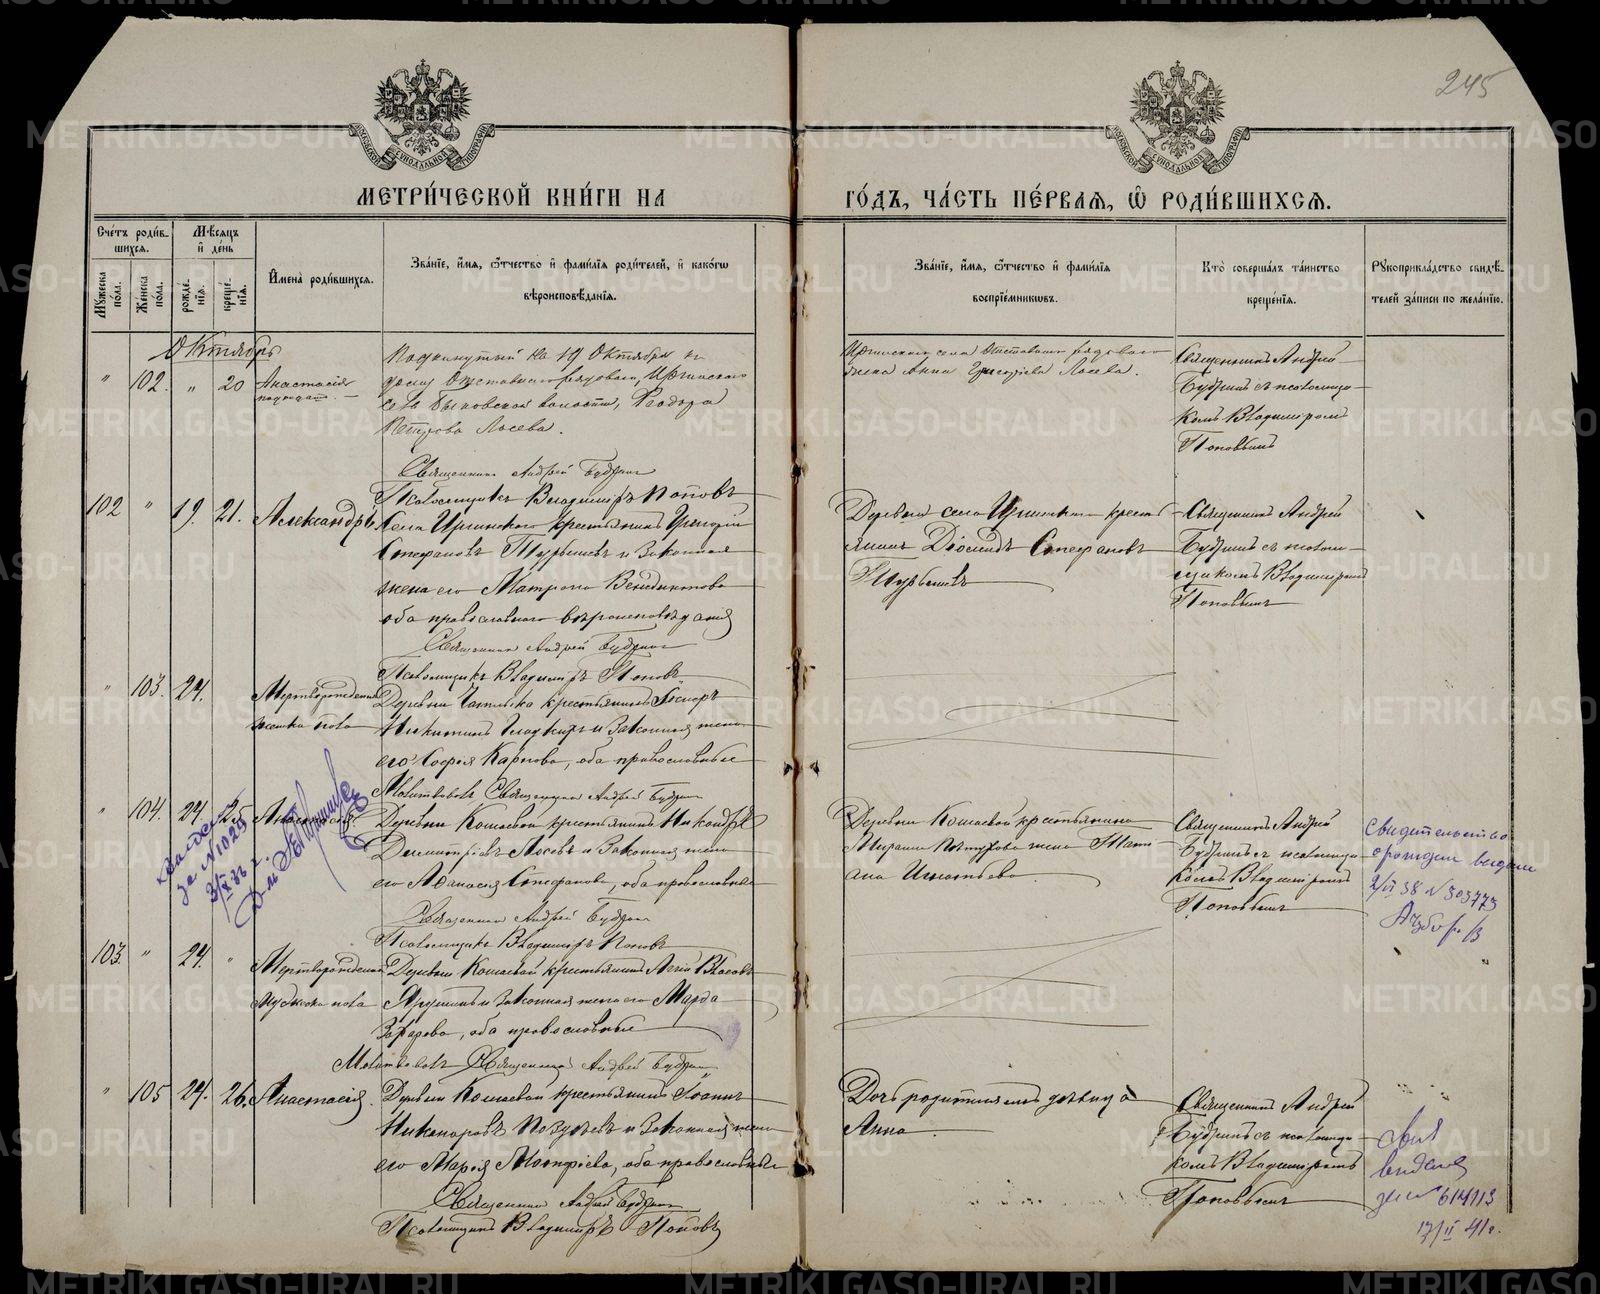 245
МОСКОВСКОЙ СУНОДАЛЬНОЙ ТИПОГРАФІИ
МОСКОВСКОЙ СУНОДАЛЬНОЙ ТИПОГРАФІИ
МЕТРИ́ЧЕСКОЙ КНИ́ГИ НА
ГО́ДЪ, ЧА́СТЬ ПЕ́РВАѦ, Ѡ҆ РОДИ́ВШИХСѦ.
Сче́тъ роди́в-
шихсѧ.
Мѣ́сѧцъ
и҆ де́нь
Мꙋ́жеска по́ла.
Же́нска по́ла.
рожде́-
нїѧ.
креще́-
нїѧ.
И҆мена̀ роди́вшихсѧ.
Зва́нїе, и҆́мѧ, ѻ҆́тчество и҆ фами́лїѧ роди́телей, и҆ како́гѡ
вѣроисповѣ́данїѧ.
Зва́нїе, и҆́мѧ, ѻ҆́тчество и҆ фами́лїѧ
воспрїе́мниковъ.
Кто̀ соверша́лъ та́инство
креще́нїѧ.
Рꙋкоприкла́дство свидѣ́-
телей за́писи по жела́нїю.
Октябрь
" 102. " 20 Анастасія
Подкинутый на 19 Октября къ
дому Отставного рядового, Иргинского
села Быковской волости, Ѳеодора
Петрова Лосева.
Иргинскаго села Отставного рядового
жена Анна Григорьева Лосева.
Священникъ Андрей
Будринъ съ псаломщи-
комъ Владиміромъ
Поповымъ
Священникъ Андрей Будринъ
Псаломщикъ Владиміръ Поповъ
102 " 19. 21. Александръ.
Села Иргинского крестьянинъ Григорій
Стефановъ Турбышевъ и законная
жена его Матрона Венедиктова
оба православного вѣроисповѣданія
крестъ-
янинъ Діомидъ Стефановъ
Турбышевъ
Священникъ Андрей
Будринъ съ псалом-
щикомъ Владиміромъ
Поповымъ
Священникъ Андрей Будринъ
Псаломщикъ Владиміръ Поповъ
" 103. 24. Мертворожденная
женска пола
крестьянинъ
Никитинъ и законная жена
его Софія Карпова, оба православные
Молитвовалъ Священникъ Андрей Будринъ
" 104. 24. 25. Анастасія.
Деревни Кошаевой крестьянинъ Никандръ
Димитріевъ Лосевъ и законная жена
его Аѳанасія Стефанова, оба православные
Деревни Кошаевой крестьянина
жена Тати-
ана Игнатьева
Священникъ Андрей
Будринъ съ псаломщи-
комъ Владиміромъ
Поповымъ
за №1025
Свидетельство
о рожден выдано
2/VI 38 № 303773
Священникъ Андрей Будринъ
Псаломщикъ Владиміръ Поповъ
103. " 24. " Мертворожденный
мужеска пола
Деревни Кошаевой крестьянинъ Власовъ
и законная жена его Марѳа
Захарова, оба православные
Молитвовалъ Священникъ Андрей Будринъ
" 105 24. 26. Анастасія.
Деревни Кошаевой крестьянинъ Іоаннъ
Никаноровъ и законная жена
его Марія, оба православные
Дочь родителямъ дѣвица
Анна
Священникъ Андрей
Будринъ съ псаломщи-
комъ Владиміромъ
Поповымъ
выдано
№ 614113
17/II 41 г.
Священникъ Андрей Будринъ
Псаломщикъ Владиміръ Поповъ
METRIKI.GASO-URAL.RU